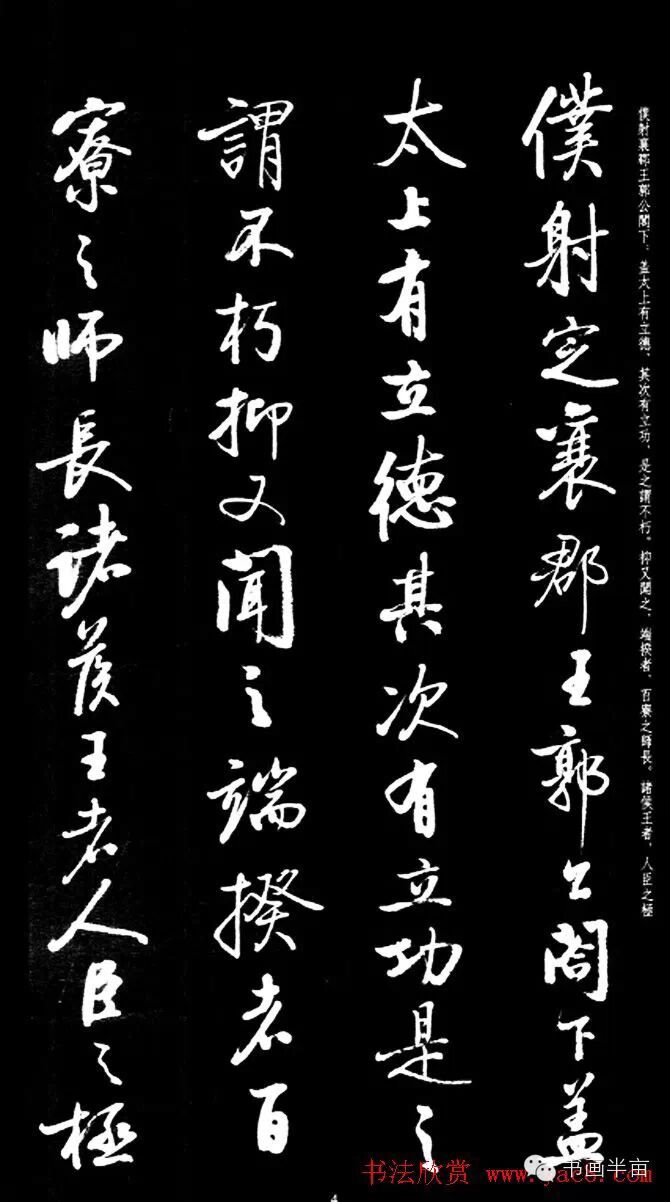 僕射襄郡王郭公閣下、蓋太上有立德、其次有立功、是之謂不朽。抑又聞之、端揆者、百寮之師長。諸侯王者、人臣之極
僕射定襄郡王郭公閤下蓋
太上有立德其次有立功是之
謂不朽抑又聞之端揆者百
寮之師長諸侯王者人臣之極
书法欣赏
书画半亩
4